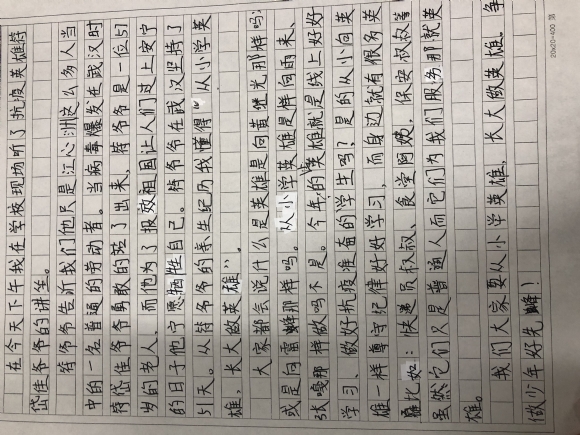 在今天下午我在学校现场听了抗疫英雄符
岱佳爷爷的讲座。
符爷爷告诉我们他只是江心洲这么多人当
中的一名普通的劳动者。当病毒爆发在武汉时
符岱佳爷爷勇敢的站了出来，符爷爷是一位51
岁的老人，而他为了报效祖国让人们过上安宁
的日子他宁愿牺牲自己。符爷爷在武汉坚持了
51天。从符爷爷的亲生经历我懂得“从小学英
雄，长大做英雄”。
大家都会说什么是英雄是向黄继光那样吗？
或是向雷锋那样吗。从小学英雄是样向雨来、
张嘎那样做吗不是。今年的英雄就是线上好好
学习、做好抗疫准备的学生吗？是的从小向英
雄一样尊守纪律好好学习，而身边就有很为英
比如：快递员叔叔、食堂阿姨，保安叔叔等
虽然它们只是普通人而它们为我们服务那就英
雄。
我们大家要从小学英雄，长大做英雄。争
做少年好先锋！
20x20=400 第